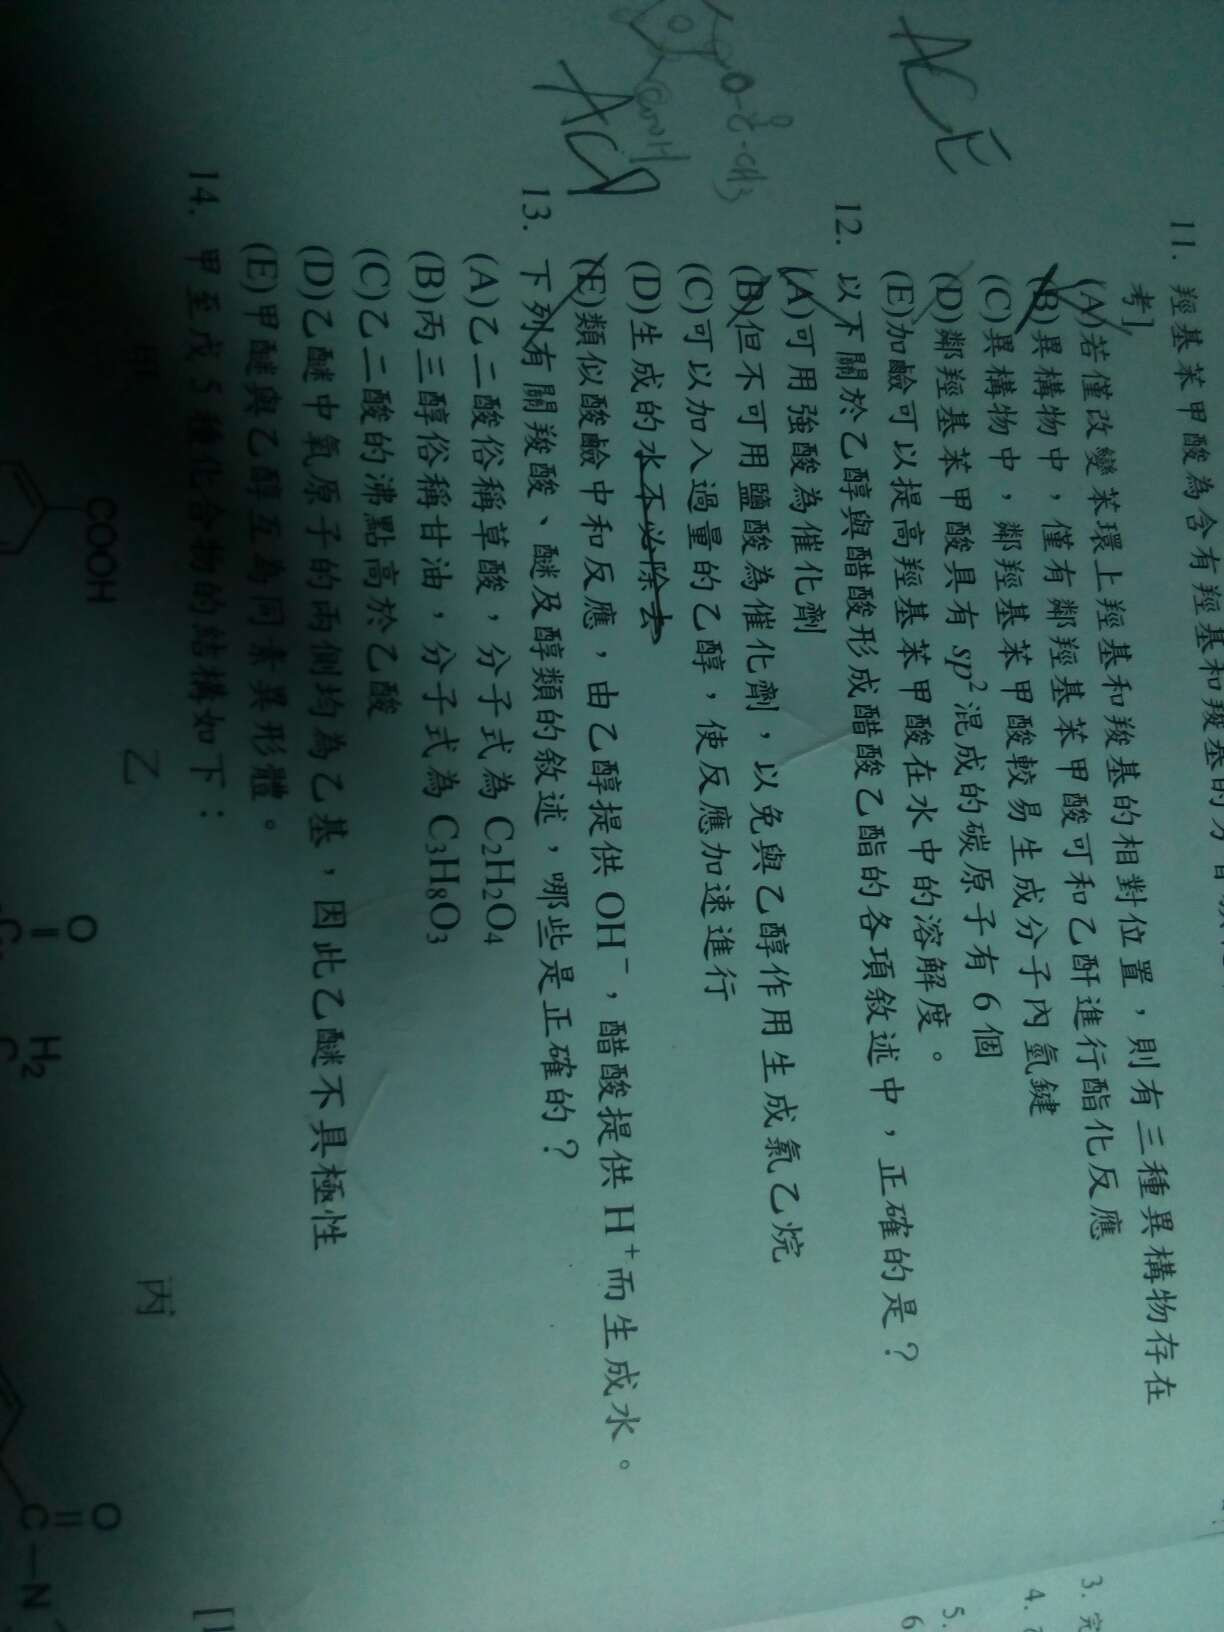 11. 羥基苯甲酸為含有羥基和羧基的芳香
考]
(A)若僅改變苯環上羥基和羧基的相對位置，則有三種異構物存在
(B)異構物中，僅有鄰羥基苯甲酸可和乙酐進行酯化反應
(C)異構物中，鄰羥基苯甲酸較易生成分子內氫鍵
(D)鄰羥基苯甲酸具有sp²混成的碳原子有6個
(E)加鹼可以提高羥基苯甲酸在水中的溶解度。
ACE
12. 以下關於乙醇與醋酸形成醋酸乙酯的各項敘述中，正確的是？
(A)可用強酸為催化劑
(B)但不可用鹽酸為催化劑，以免與乙醇作用生成氯乙烷
(C)可以加入過量的乙醇，使反應加速進行
(D)生成的水不必除去
(E)類似酸鹼中和反應，由乙醇提供OH⁻，醋酸提供H⁺而生成水。
O-C-CH3
O
COOH
13. 下列有關羧酸、醚及醇類的敘述，哪些是正確的？
(A)乙二酸俗稱草酸，分子式為C₂H₂O₄
(B)丙三醇俗稱甘油，分子式為C₃H₈O₃
(C)乙二酸的沸點高於乙酸
(D)乙醚中氧原子的兩側均為乙基，因此乙醚不具極性
(E)甲醚與乙醇互為同素異形體。
14. 甲至戊5種化合物的結構如下：
甲
乙
丙
COOH
O
H₂
C
O
C—N
3. 完
4.
5.
6